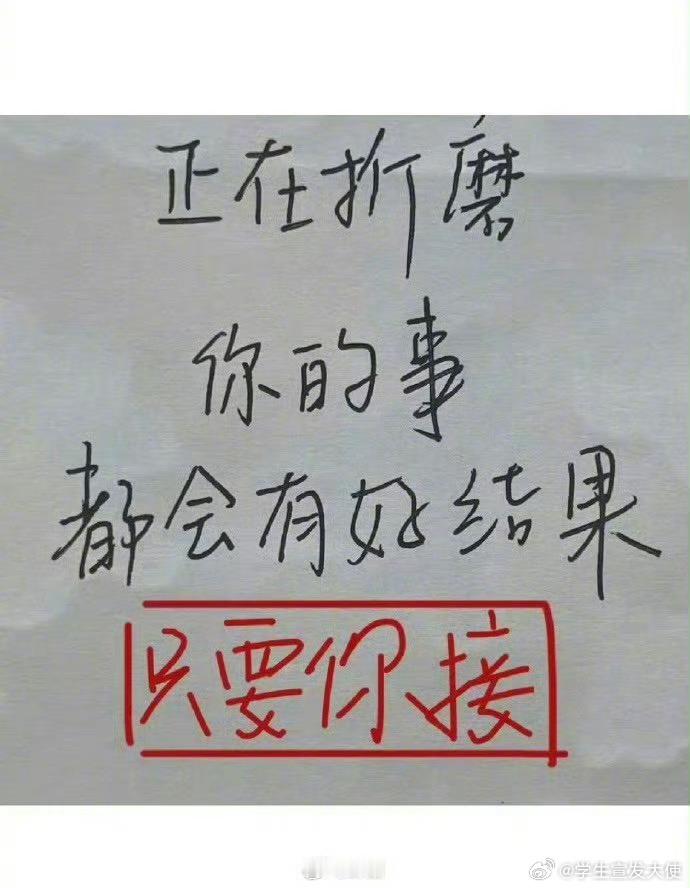 正在折磨
你的事
都会有好结果
只要你接
@学生宣发大使